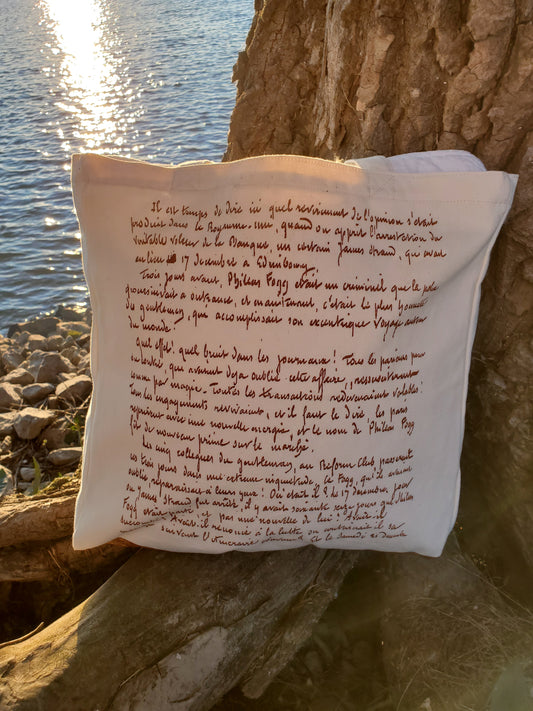 Il est temps de dire ici quel revirement de l'opinion s'était
produit dans le Royaume-uni, quand on apprit l'arrestation du
véritable voleur de la Banque, un certain James Strand, qui avait
eu lieu le 17 décembre à Edimbourg.
Trois jours avant, Philéas Fogg était un criminel que la police
poursuivait à outrance, et maintenant, c'était le plus honnête
des gentlemen, qui accomplissait son excentrique voyage autour
du monde.
quel effet, quel bruit dans les journaux! Tous les parieurs pour
ou contre, qui avaient déjà oublié cette affaire, ressuscitèrent
comme par magie. Toutes les transactions redevenaient valables.
Tous les engagements revivaient, et il faut le dire, les paris
reprirent avec une nouvelle énergie, et le nom de Philéas Fogg
fit de nouveau prime sur le marché.
Les cinq collègues du gentleman, au Reform Club, passèrent
ces trois jours dans une extrême inquiétude. Ce Fogg, qu'ils avaient
oublié, reparaissait à leurs yeux! Où était-il? Le 17 décembre, jour
où James Strand fut arrêté, il y avait soixante seize jours que Philéas
Fogg était parti, et pas une nouvelle de lui! Avait-il
succombé? Avait-il renoncé à la lutte ou continuait-il sa
suivant l'itinéraire convenu, et le samedi 21 décembre